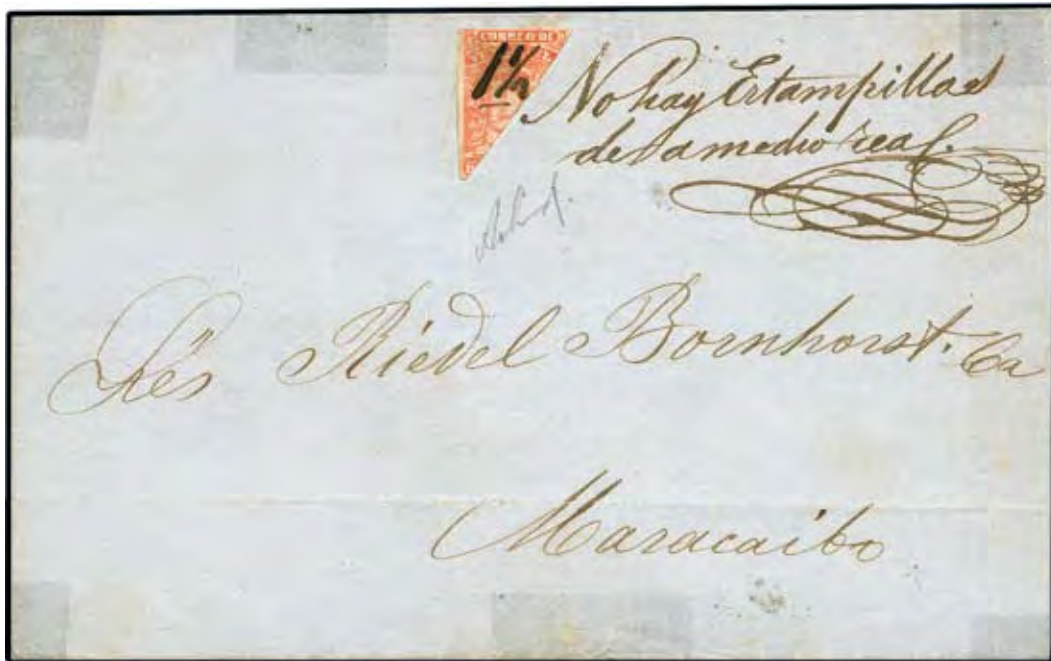 CORREO DE
1 1/2
No hay Estampillas
de a medio real.
Riedel Bornhorst. Ca
Maracaibo